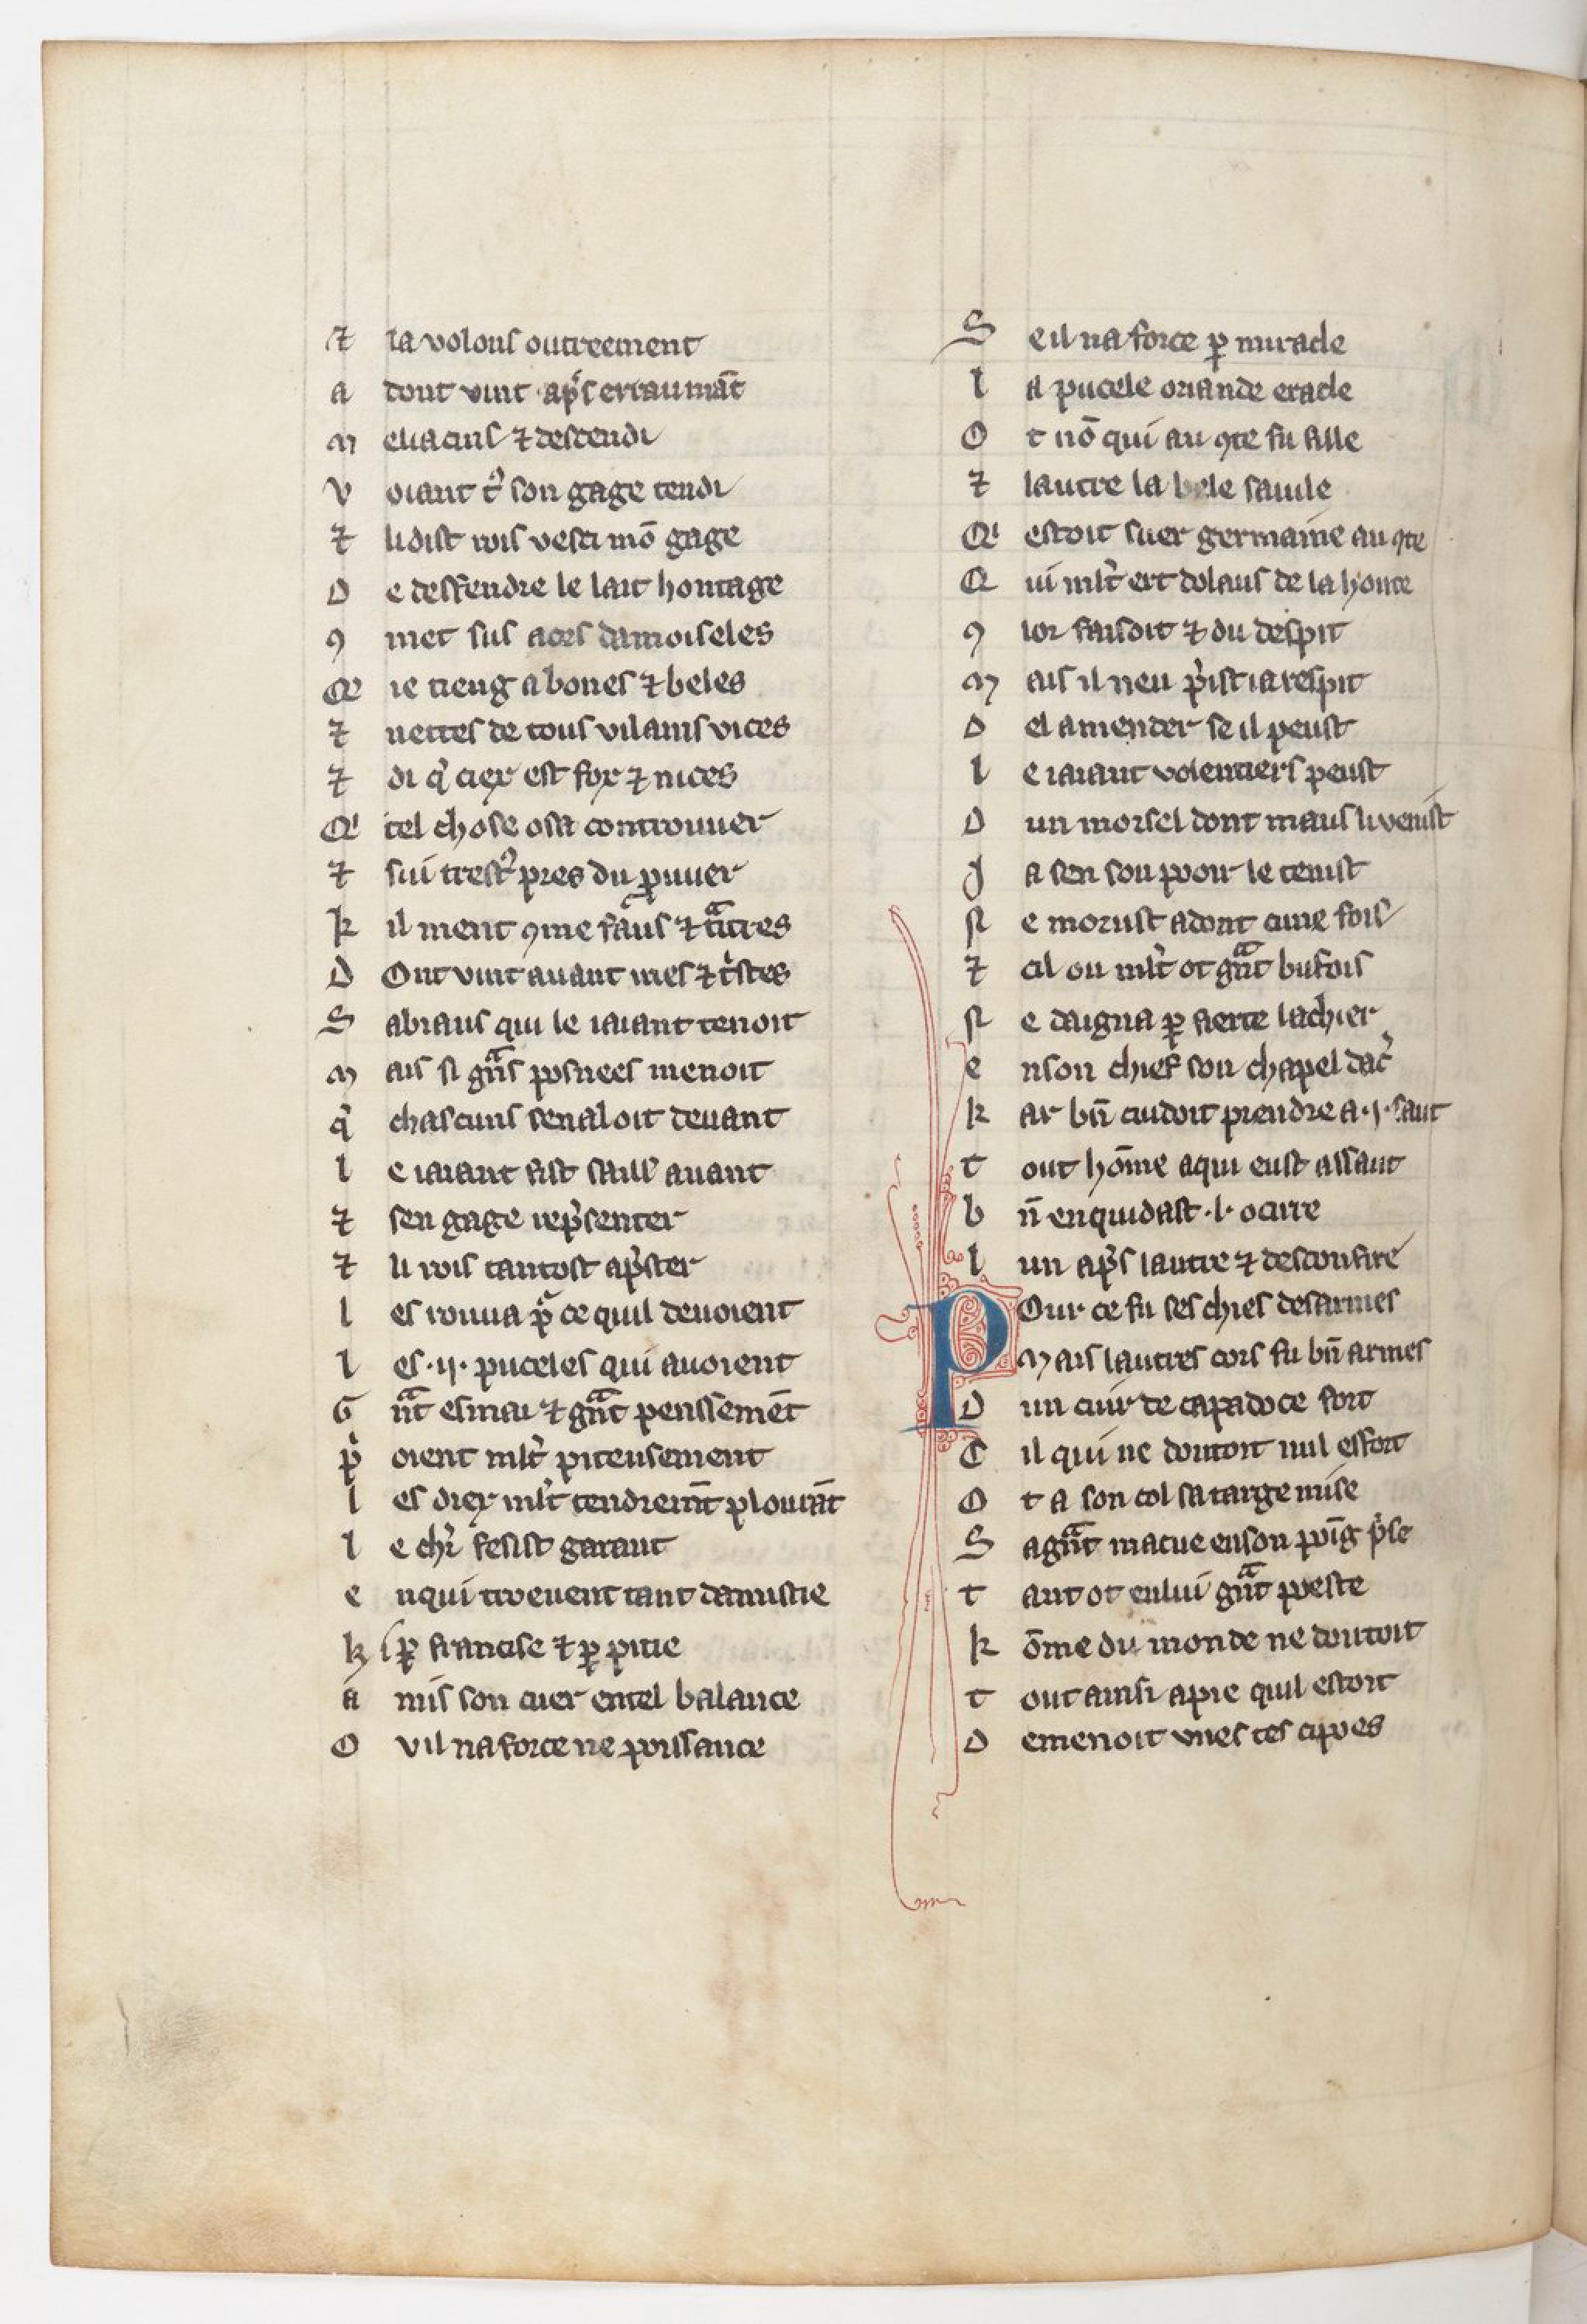 ⁊ la volons outreement
a dont vint ap̾s erraumāt
m eliacins ⁊ descendi
v oiant t̾ son gage tendi
⁊ li dist rois vesci mō gage
D e desfendre le lait hontage
ꝯ met sus aces damoiseles
Q̾ ie tieng a bones ⁊ beles
⁊ nettes de tous vilains vices
⁊ di q̾ ciex est fox ⁊ nices
Q̾ tel chose osa controuuer
⁊ sui trest̾ pres du ꝓuuer
k il ment ꝯme faus ⁊ tͣitres
D Ont vint auant mes ⁊ t̾stes
S abraus qui le iaiant tenoit
m ais si gͣns posnees menoit
q̾ chascuns senaloit deuant
l e iaiant fist saill' auant
⁊ sen gage rep̾senter
⁊ li rois tantost ap̾ster
l es rouua pͣ ce quil deuoient
l es .ij. puceles qui auoient
G ͣnt esmai ⁊ gͣnt penssemēt
p̾ oient ml̾t piteusement
l es diex ml̾t tendremēt plourāt
l e chl̾r fesist garant
e nqui troeuent tant damistie
k ꝑ francise ⁊ ꝑ pitie
a mis son cuer entel balance
O v il na force ne poissance
S e il na force ꝑ miracle
l a pucele oriande eracle
O t nō qui au ꝯte fu fille
⁊ lautre la bele saimle
Q̾ estoit suer germaine au ꝯte
Q ui ml̾t ert dolaus de la honte
ꝯ lor faisoit ⁊ du despit
m ais il neu p̾ist ia respit
D el amender se il peust
l e iaiant volentiers peust
D un morsel dont maus li venist
J a sen son pooir le tenist
N e morust adont cune fois
⁊ cil ou ml̾t ot gͣnt bufois
N e daigna ꝑ fierte lachier
e nson chief son chapel dac̾
k ar bn̄ cuidoit prendre a .j. saut
t out hōme aqui eust assaut
b n̄ enquidast .l. ocirre
l un ap̾s lautre ⁊ desconfire
P Our ce fu ses chies desarmes
Mais lautres cors fu bn̄ armes
D un cuir de capadoce fort
C il qui ne doutoit nul effort
O t a son col sa targe mise
S agͣnt macue enson poīg p̾se
t ant ot enlui gͣnt poeste
k ōme du monde ne doutoit
t out ainsi apie quil estoit
D emenoit vnes tes cipoes